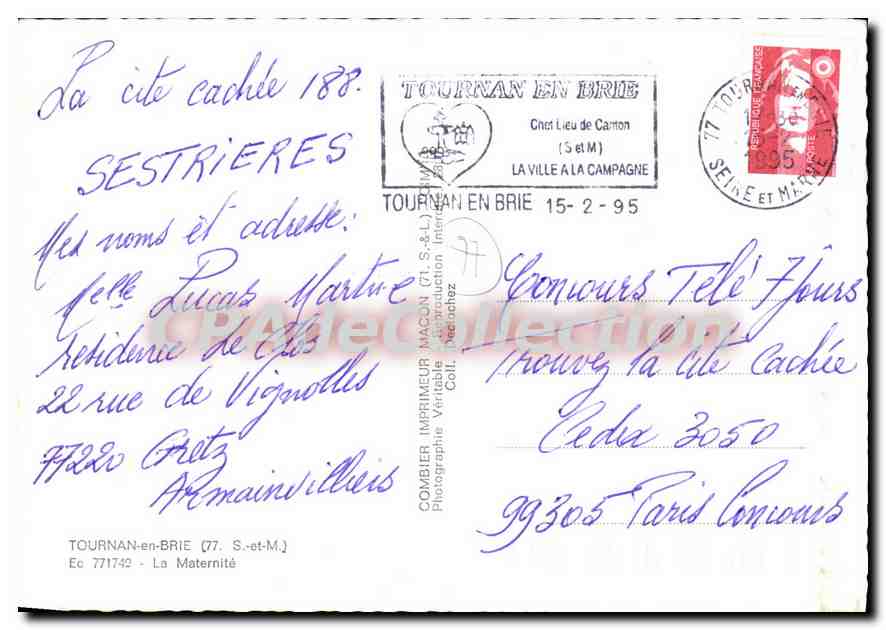 La cité cachée 188.
SESTRIERES
Mes noms et adresse:
Melle Lucas Martine
résidence Le Clos
22 rue de Vignolles
77220 Gretz
Armainvilliers
TOURNAN-en-BRIE (77. S.-et-M.)
Ec 771742 - La Maternité
TOURNAN EN BRIE
Chef Lieu de Canton
(S et M)
LA VILLE A LA CAMPAGNE
TOURNAN EN BRIE 15-2-95
77 TOURNAN EN BRIE
1995
SEINE ET MARNE
REPUBLIQUE FRANÇAISE
LA POSTE
77
COMBIER IMPRIMEUR MACON (71. S.-&-L.)
Photographie Véritable - Reproduction
Coll.
CPAdeCollection
Concours Télé 7 Jours
Trouvez la cité cachée
Cedex 3050
99305 Paris Concours